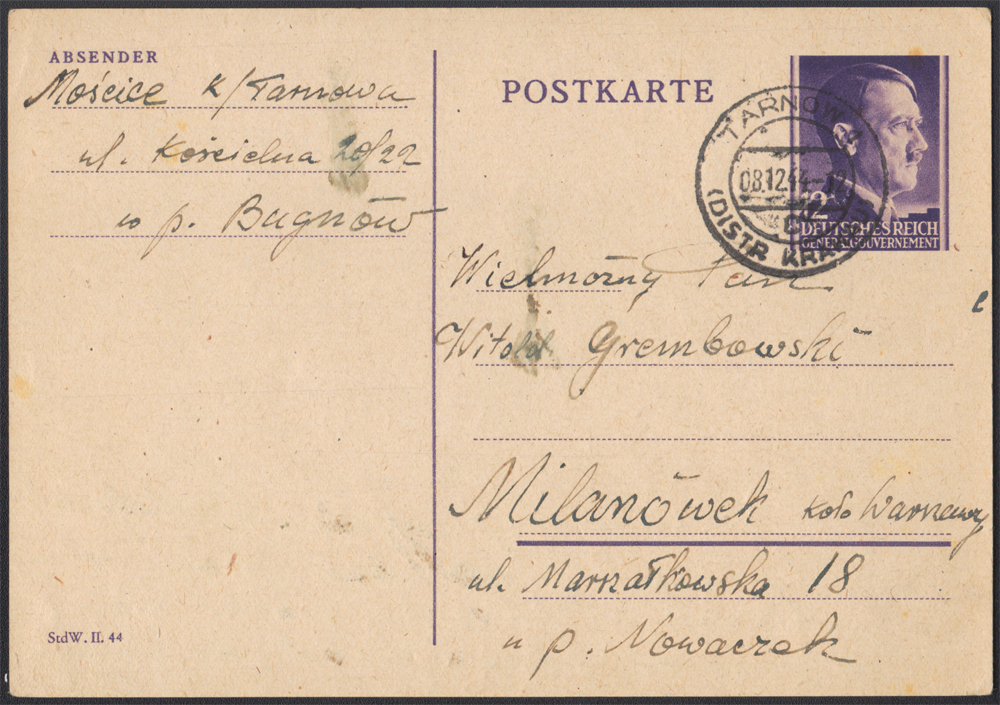 ABSENDER
Mościce k/Tarnowa
ul. Kościelna 20/22
u p. Bugnów
StdW. II. 44
POSTKARTE
TARNÓW
08.12.44
(DISTR. KRAKAU)
12
DEUTSCHES REICH
GENERALGOUVERNEMENT
Wielmożny Pan
Witold Grembowski
Milanówek koło Warszawy
ul. Marszałkowska 18
u p. Nowaczek